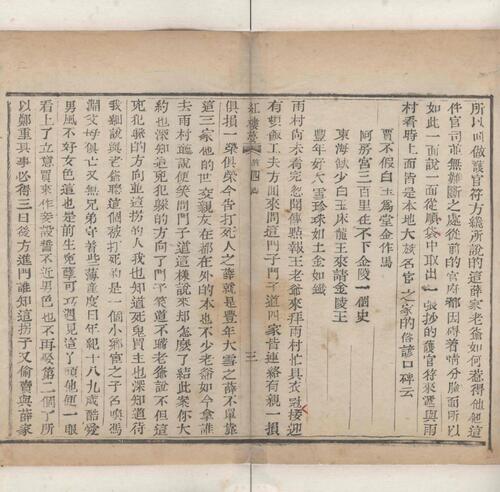 所以叫做護官符方纔所說的這薛家老爺如何惹得他他這
件官司並無難斷之處從前的官府都因碍着情分臉面所以
如此一面說一面從順袋中取出一張抄的護官符來遞與雨
村看時上面皆是本地大族名官之家的俗諺口碑云
賈不假白玉爲堂金作馬
阿房宮三百里住不下金陵一個史
東海缺少白玉床龍王來請金陵王
豐年好大雪珍珠如土金如鐵
雨村尚未看完忽聞傳點報王老爺來拜雨村忙具衣冠接迎
有頓飯工夫方囘來問這門子門子道四家皆連絡有親一損
紅樓夢 第四回 三
俱損一榮俱榮今告打死人之薛就是豐年大雪之薛不單靠
這三家他的世交親友在都在外的本也不少老爺如今拿誰
去雨村聽說便笑問門子道這樣說來却怎麽了結此案你大
約也深知這兇犯躱的方向了門子笑道不瞞老爺說不但這
兇犯躱的方向並這拐的人我也知道死鬼買主也深知道待
我細說與老爺聽這個被打死的是一個小鄉宦之子名喚馮
淵父母俱亡又無兄弟守着些薄產度日年紀十八九歲酷愛
男風不好女色這也是前生寃孽可巧遇見這丫頭他便一眼
看上了立意買來作妾設誓不近男色也不再娶第二個了所
以鄭重其事必得三日後方進門誰知這拐子又偷賣與薛家